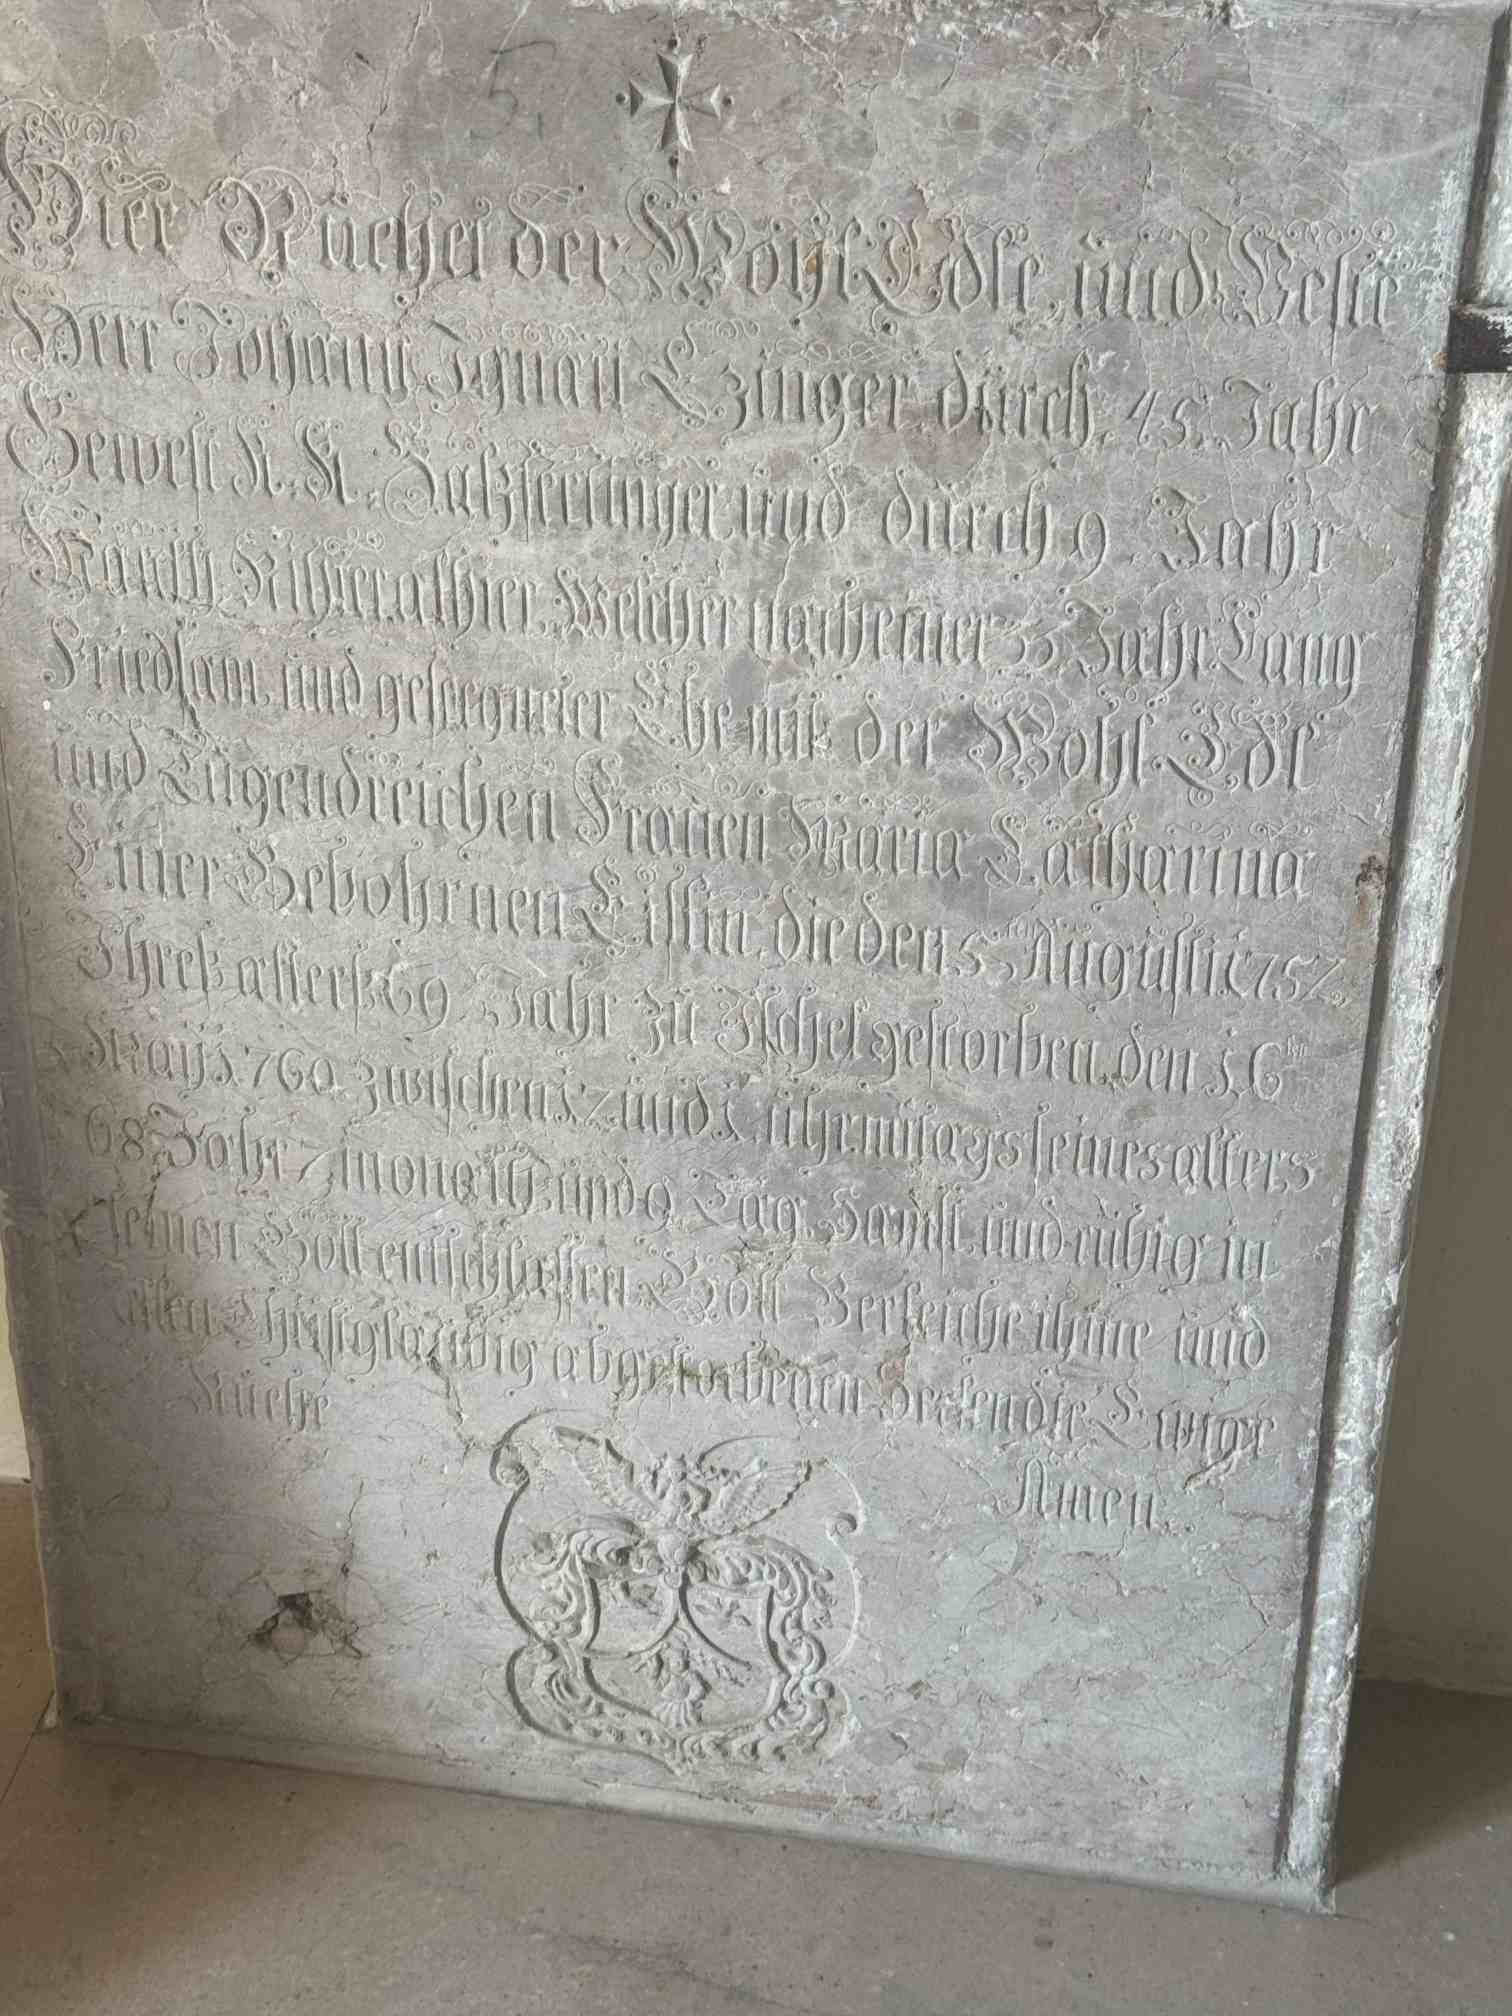 5.
Hier Ruehet der Wohl Edle und Veste
Herr Johann Ignati Ezinger durch 45 Jahr
Gewest K. K. Saltzfertinger und durch 9 Jahr
Marckh Richter alhier Welcher nach einer 33 Jahr Lang
Friedsam und geseegneter Ehe mit der Wohl Edl
und Tugendreichen Frauen Maria Catharina
Einer Gebohrnen Eislin die den 5ten Augusti 1752
Ihres alters 69 Jahr zu Ischel gestorben den 16ten
May 1760 zwischen 12 und 1 uhr mitags seines alters
68 Jahr 7 monath und 9 Tag Sanfft und ruhig in
seinen Gott entschlaffen Gott Verleiche ihme und
allen Christglaubig abgestorbenen Seelen die Ewige
Ruehe
Amen